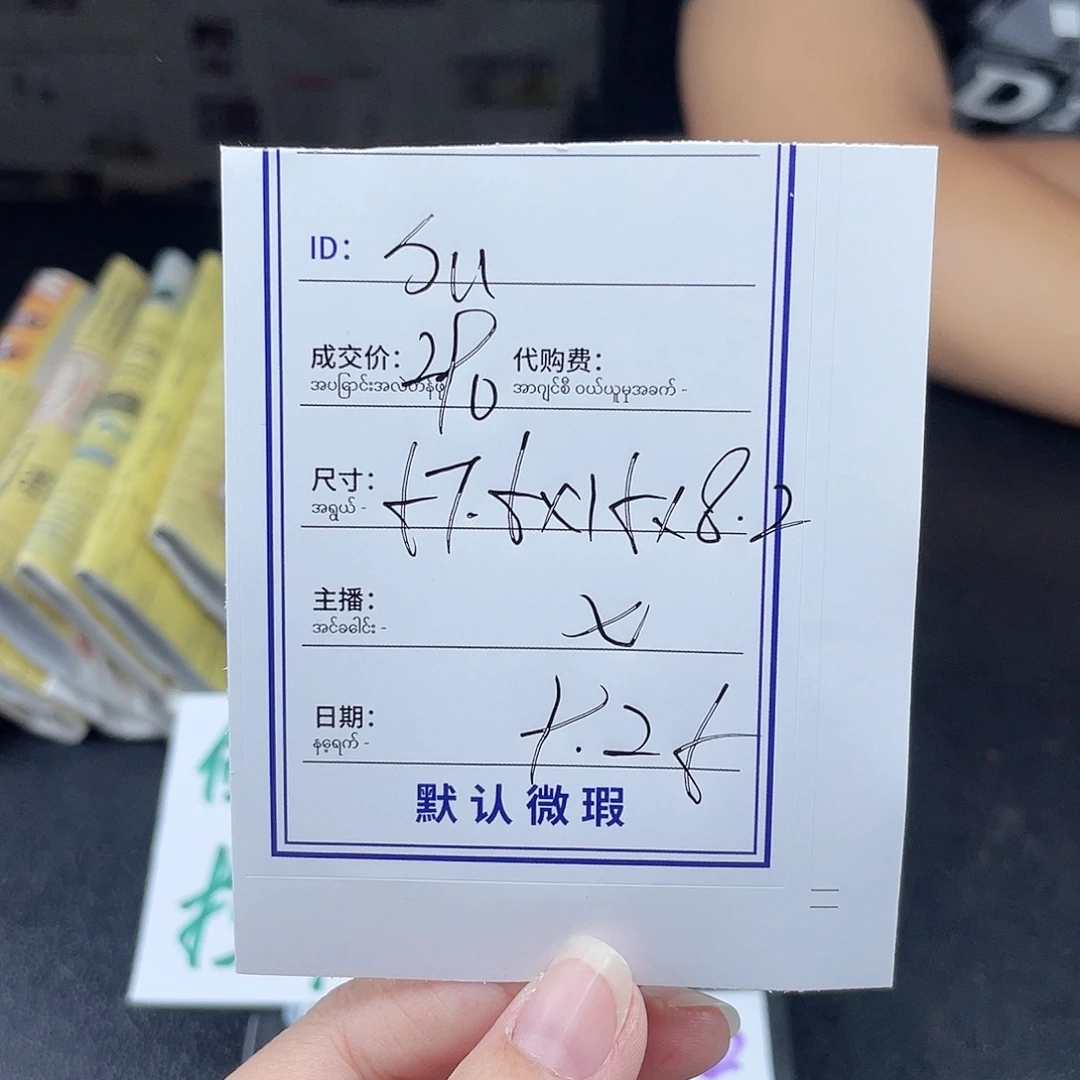 ID: Su
成交价: 280 代购费:
အပြောင်းအလဲတန်ဖိုး အာဂျင်စီ ဝယ်ယူမှုအခက် -
尺寸: 57.5x15x8.2
အရွယ် -
主播: X
အင်ခေါင်း -
日期:
နေ့ရက် -
默认微瑕